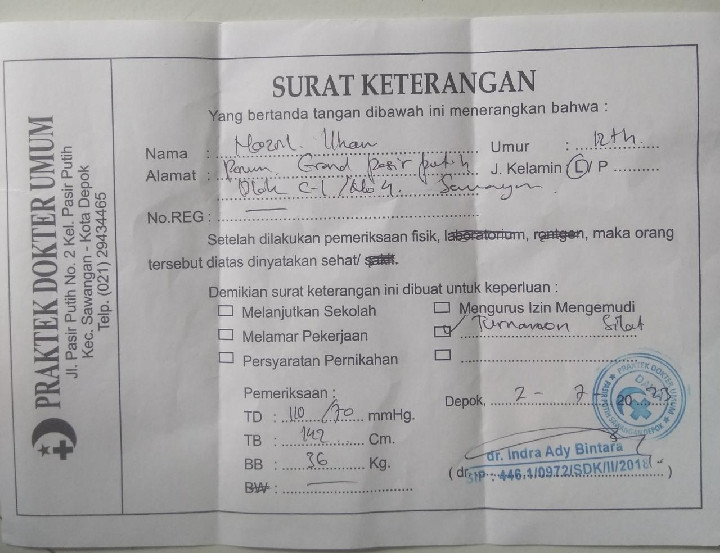 PRAKTEK DOKTER UMUM
Jl. Pasir Putih No. 2 Kel. Pasir Putih
Kec. Sawangan - Kota Depok
Telp. (021) 29434465
SURAT KETERANGAN
Yang bertanda tangan dibawah ini menerangkan bahwa :
Nama :
Umur : 12 th
Alamat : Perum. Grand pasir putih
J. Kelamin L/ P
Blok C-1
No.REG : —
Setelah dilakukan pemeriksaan fisik, laboratorium, rontgen, maka orang
tersebut diatas dinyatakan sehat/ sakit.
Demikian surat keterangan ini dibuat untuk keperluan :
Melanjutkan Sekolah
Mengurus Izin Mengemudi
Melamar Pekerjaan
Silat
Persyaratan Pernikahan
Pemeriksaan :
Depok, 2 - 7 - 2023
TD : 110/70 mmHg.
TB : 142 Cm.
BB : 36 Kg.
BW :
dr. Indra Ady Bintara
(dr. )
SIP : 446.1/0972/SDK/II/2018
PRAKTEK DOKTER UMUM
DEPOK